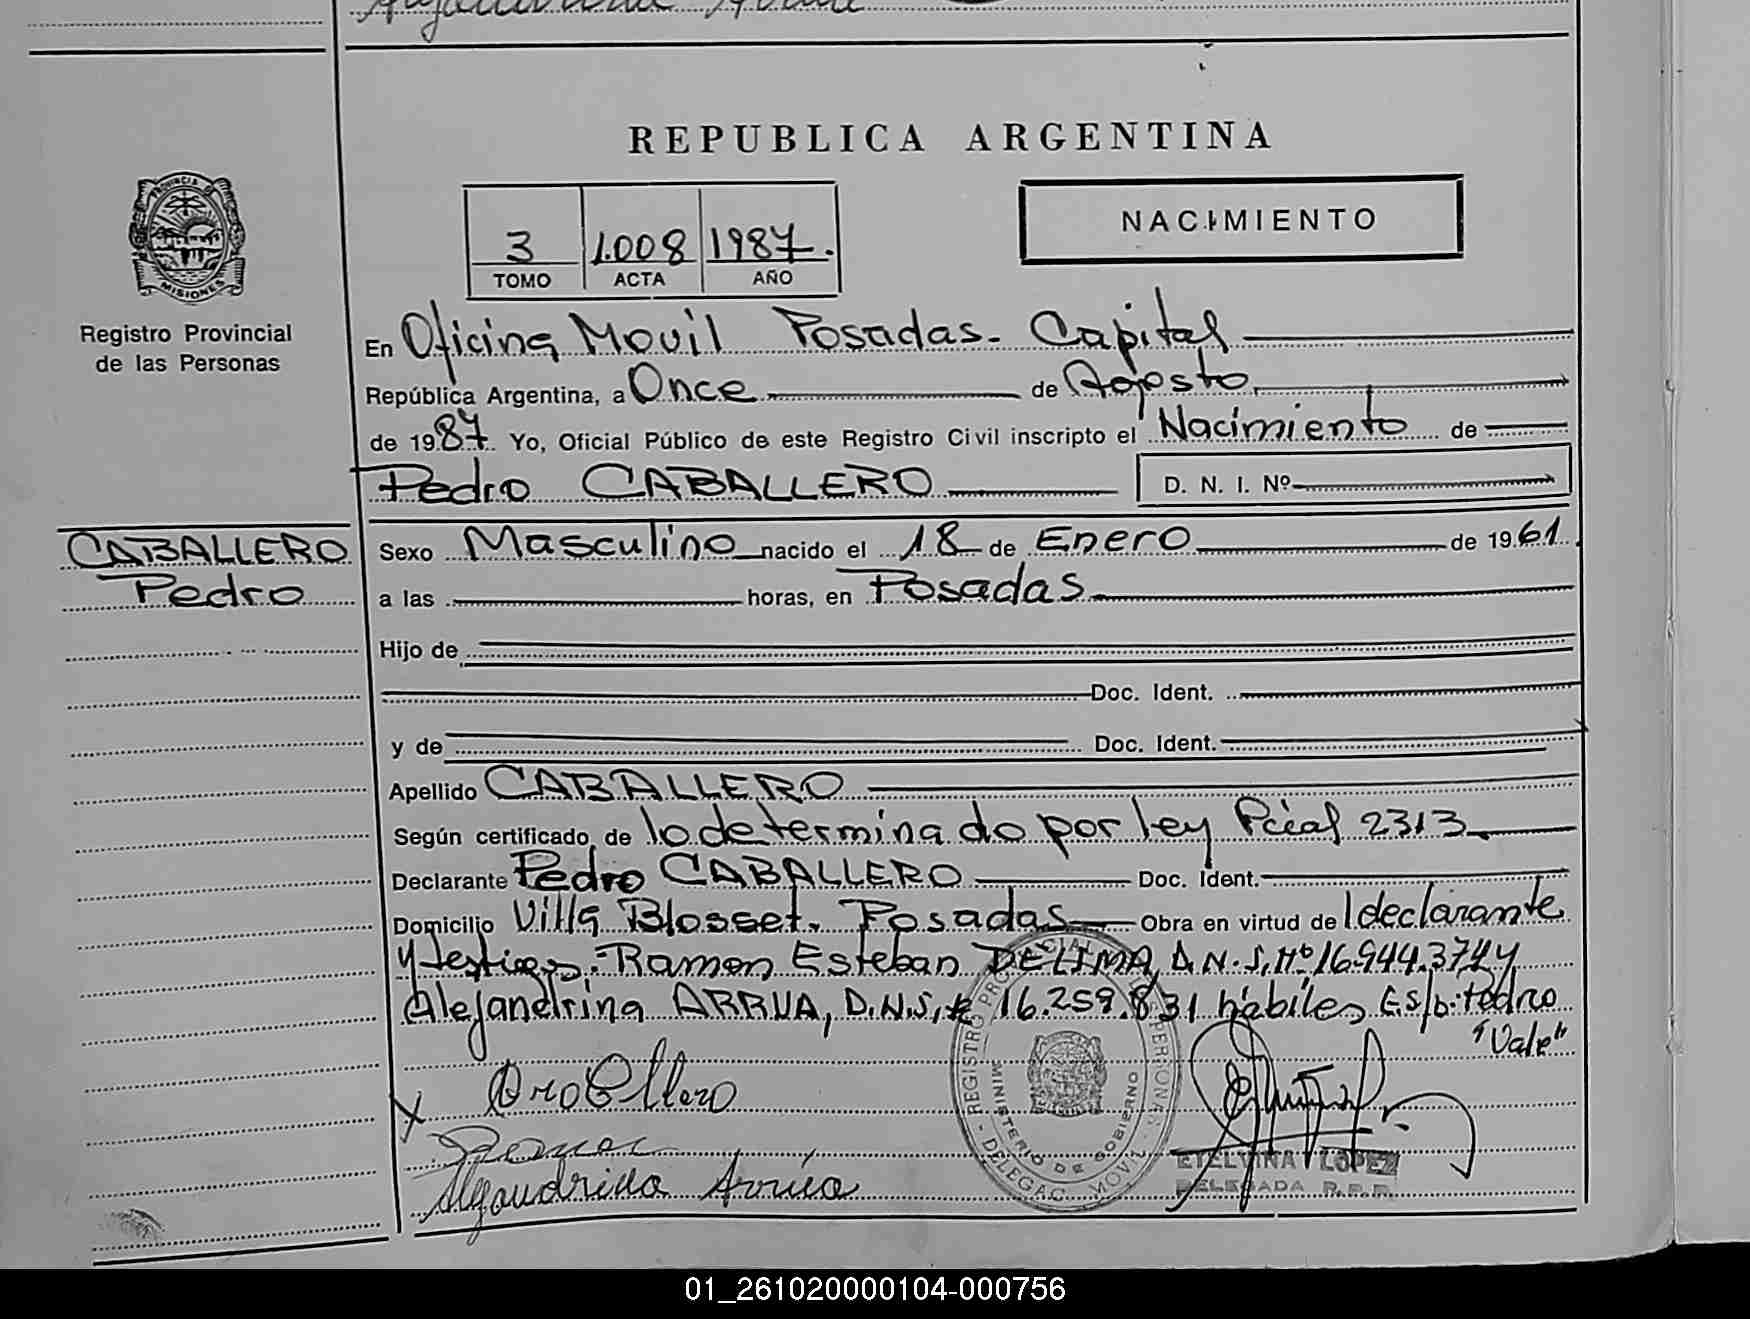 REPUBLICA ARGENTINA
NACIMIENTO
3 1.008 1987.
TOMO ACTA AÑO
PROVINCIA DE
MISIONES
Registro Provincial
de las Personas
En Oficina Movil Posadas - Capital
República Argentina, a Once de Agosto
de 1987. Yo, Oficial Público de este Registro Civil inscripto el Nacimiento de
Pedro CABALLERO D. N. I. Nº
CABALLERO
Pedro
Sexo Masculino nacido el 18 de Enero de 1961.
a las horas, en Posadas
Hijo de
Doc. Ident.
y de Doc. Ident.
Apellido CABALLERO
Según certificado de lo determinado por ley Pcial 2313
Declarante Pedro CABALLERO Doc. Ident.
Domicilio Villa Blosset. Posadas Obra en virtud de l declarante
y testigos: Ramon Esteban DELIMA, D.N.I. Nº 16.944.374 y
Alejandrina ARRUA, D.N.I, 16.259.831 hábiles E/s/b: Pedro
"Vale"
REGISTRO PROVINCIAL DE PERSONAS
MINISTERIO DE GOBIERNO
- DELEGAC. MOVIL -
Alejandrina Arrúa
ETELVINA LOPEZ
DELEGADA R.P.P.
01_261020000104-000756